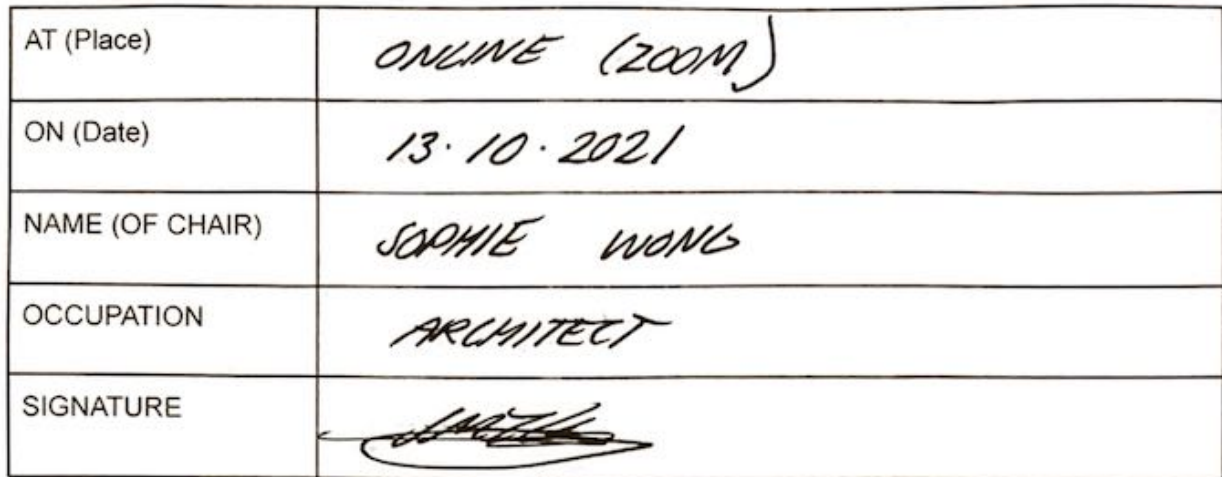 AT (Place) ONLINE (ZOOM)
ON (Date) 13.10.2021
NAME (OF CHAIR) SOPHIE WONG
OCCUPATION ARCHITECT
SIGNATURE